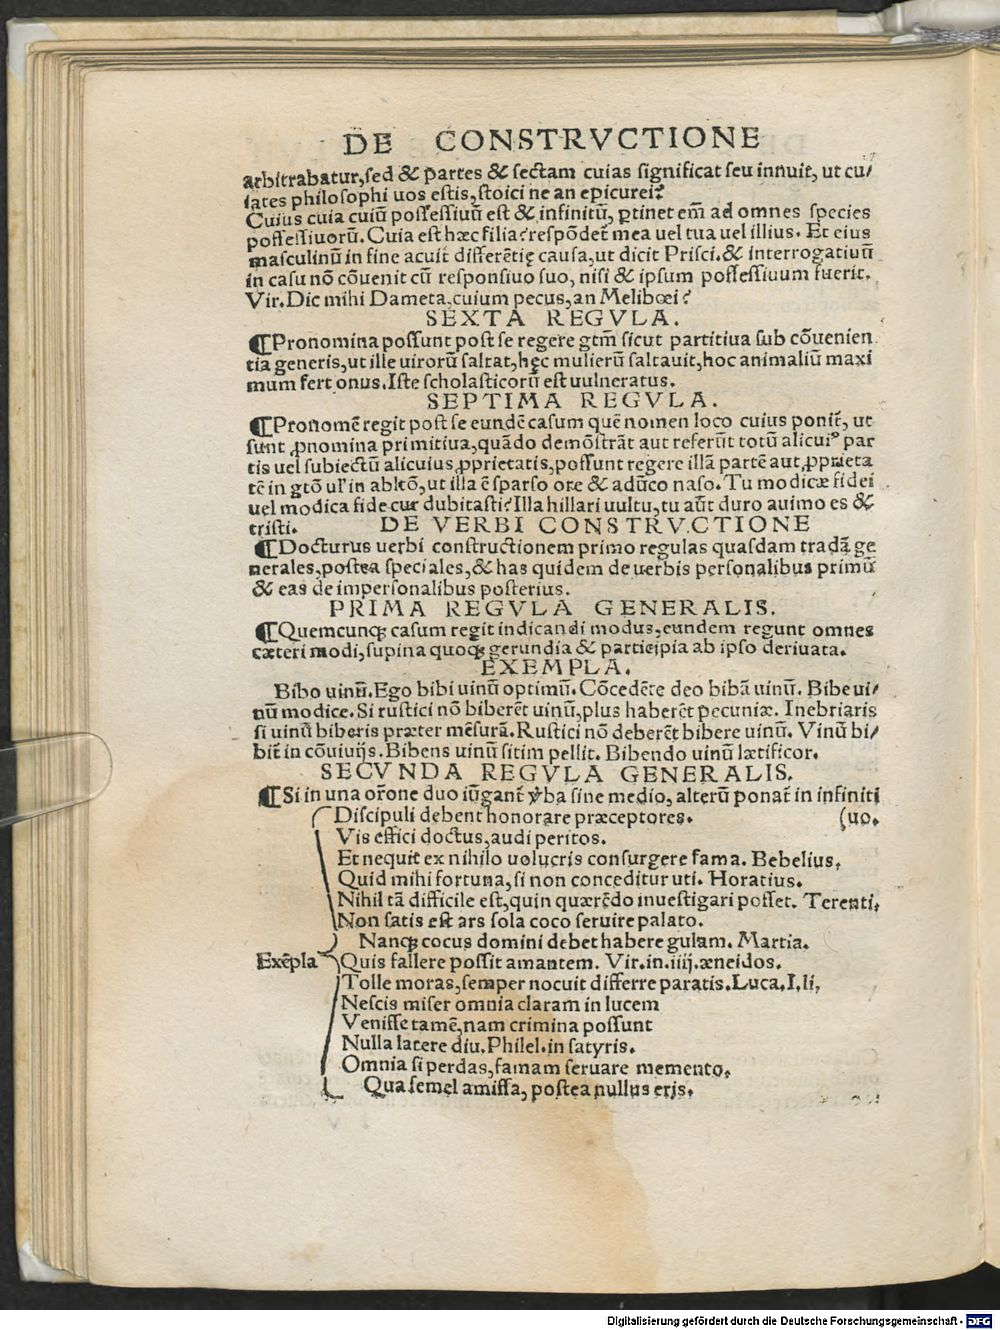 DE CONSTRVCTIONE
arbitrabatur,sed & partes & sectam cuias significat seu innuit, ut cu/
iates philosophi uos estis,stoici ne an epicurei?
Cuius cuia cuiũ possessiuũ est & infinitũ, ꝑtinet em̃ ad omnes species
possessiuorũ. Cuia est hæc filia?respõdet̃ mea uel tua uel illius. Et eius
masculinũ in fine acuit differẽtię causa,ut dicit Prisci.& interrogatiuũ
in casu nõ cõuenit cũ responsiuo suo, nisi & ipsum possessiuum fuerit.
Vir.Dic mihi Dameta,cuium pecus,an Melibœi?
SEXTA REGVLA.
¶Pronomina possunt post se regere gtm̃ sicut partitiua sub cõuenien
tia generis,ut ille uirorũ saltat,hęc mulierũ saltauit,hoc animaliũ maxi
mum fert onus.Iste scholasticorũ est uulneratus.
SEPTIMA REGVLA.
¶Pronomẽ regit post se eundẽ casum quẽ nomen loco cuius ponit̃, ut
sunt ꝓnomina primitiua,quãdo demõstrãt aut referũt totũ alicuiꝰ par
tis uel subiectũ alicuius ꝓprietatis,possunt regere illã partẽ aut ꝓprieta
tẽ in gtõ ul' in abltõ,ut illa ẽ sparso ore & adũco naso. Tu modicæ fidei
uel modica fide cur dubitasti?Illa hillari uultu,tu aũt duro auimo es &
tristi. DE VERBI CONSTRVCTIONE
¶Docturus uerbi constructionem primo regulas quasdam tradã ge
nerales,postea speciales,& has quidem de uerbis personalibus primũ
& eas de impersonalibus posterius.
PRIMA REGVLA GENERALIS.
¶Quemcunqꝫ casum regit indicandi modus,eundem regunt omnes
cæteri modi,supina quoqꝫ gerundia & participia ab ipso deriuata.
EXEMPLA.
Bibo uinũ.Ego bibi uinũ optimũ. Cõcedẽte deo bibã uinũ. Bibe ui/
nũ modice. Si rustici nõ biberẽt uinũ,plus haberẽt pecuniæ. Inebriaris
si uinũ biberis præter mẽsurã. Rustici nõ deberẽt bibere uinũ. Vinũ bi/
bit̃ in cõuiuijs. Bibens uinũ sitim pellit. Bibendo uinũ lætificor.
SECVNDA REGVLA GENERALIS.
¶Si in una or̃one duo iũgant̃ ỹba sine medio, alterũ ponat̃ in infiniti
Discipuli debent honorare præceptores. (uo.
Vis effici doctus,audi peritos.
Et nequit ex nihilo uolucris consurgere fama. Bebelius.
Quid mihi fortuna,si non conceditur uti. Horatius.
Nihil tã difficile est,quin quærẽdo inuestigari posset. Terenti.
Non satis est ars sola coco seruire palato.
Nanqꝫ cocus domini debet habere gulam. Martia.
Exẽpla Quis fallere possit amantem. Vir.in.iiij.æneidos.
Tolle moras,semper nocuit differre paratis.Luca.I.li.
Nescis miser omnia claram in lucem
Venisse tamẽ,nam crimina possunt
Nulla latere diu.Philel.in satyris.
Omnia si perdas,famam seruare memento.
Qua semel amissa, postea nullus eris.
Digitalisierung gefördert durch die Deutsche Forschungsgemeinschaft - DFG